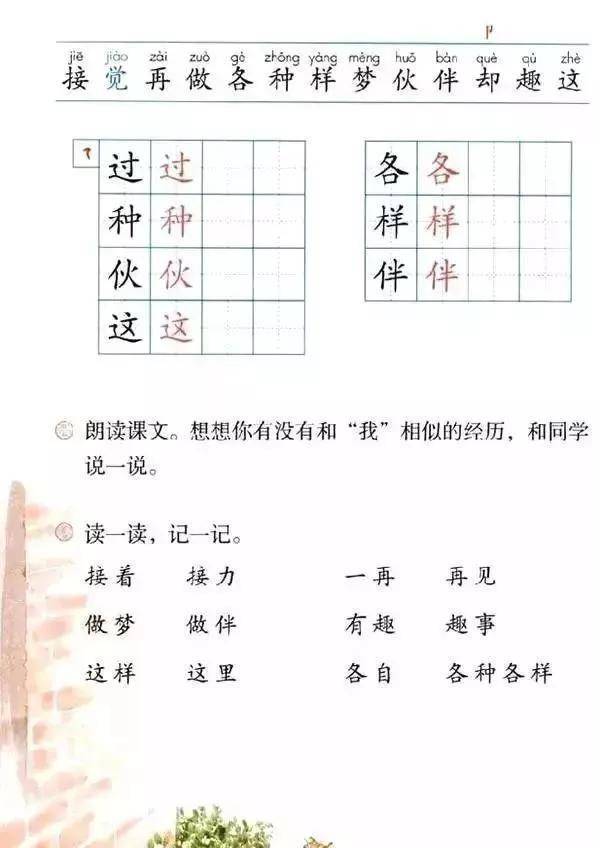 卩
jiē jiào zài zuò gè zhǒng yàng mèng huǒ bàn què qù zhè
接 觉 再 做 各 种 样 梦 伙 伴 却 趣 这
过 过
种 种
伙 伙
这 这
各 各
样 样
伴 伴
朗读课文。想想你有没有和“我”相似的经历，和同学
说一说。
读一读，记一记。
接着 接力 一再 再见
做梦 做伴 有趣 趣事
这样 这里 各自 各种各样